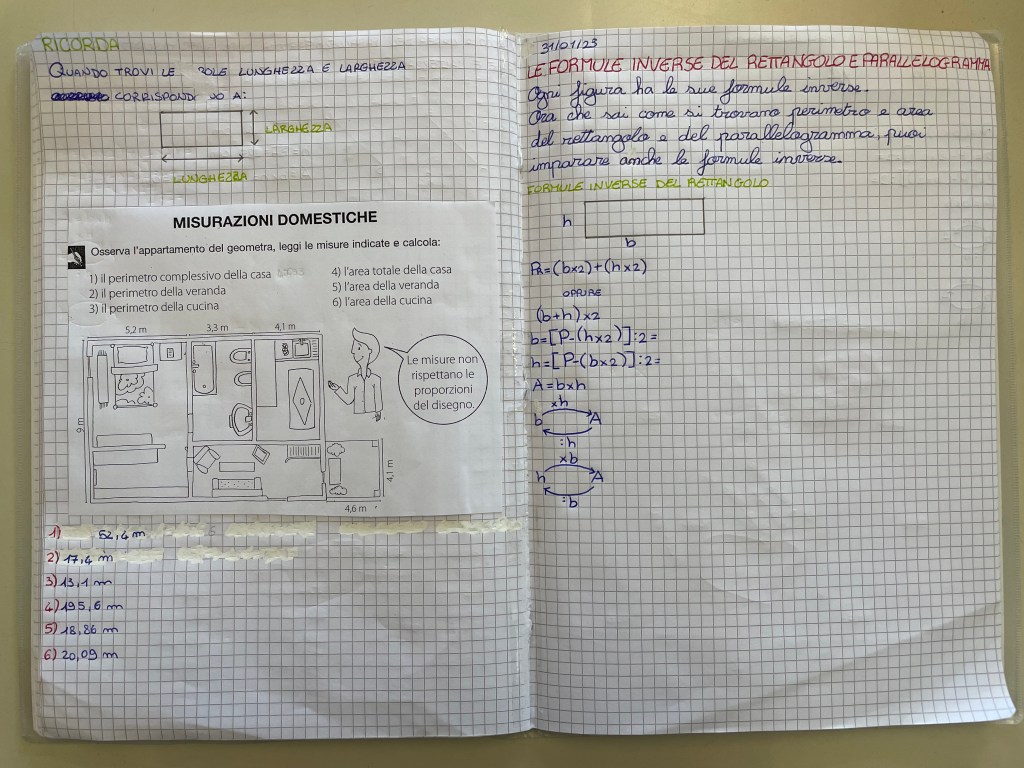 RICORDA
QUANDO TROVI LE ROLE LUNGHEZZA E LARGHEZZA
CORRISPONDONO A:
LARGHEZZA
LUNGHEZZA
MISURAZIONI DOMESTICHE
Osserva l'appartamento del geometra, leggi le misure indicate e calcola:
1) il perimetro complessivo della casa
2) il perimetro della veranda
3) il perimetro della cucina
4) l'area totale della casa
5) l'area della veranda
6) l'area della cucina
5,2 m 3,3 m 4,1 m
Le misure non
rispettano le
proporzioni
del disegno.
9 m
4,1 m
4,6 m
1) 52,4 m
2) 17,4 m
3) 13,1 m
4) 195,6 m
5) 18,86 m
6) 20,09 m
31/01/23
LE FORMULE INVERSE DEL RETTANGOLO E PARALLELOGRAMMA
Ogni figura ha le sue formule inverse.
Ora che sai come si trovano perimetro e area
del rettangolo e del parallelogramma, puoi
imparare anche le formule inverse.
FORMULE INVERSE DEL RETTANGOLO
h
b
=(b×2)+(h×2)
OPPURE
(b+h)×2
b=[P-(h×2)]:2=
h=[P-(b×2)]:2=
A=b×h
×h
b A
:h
×b
h A
:b